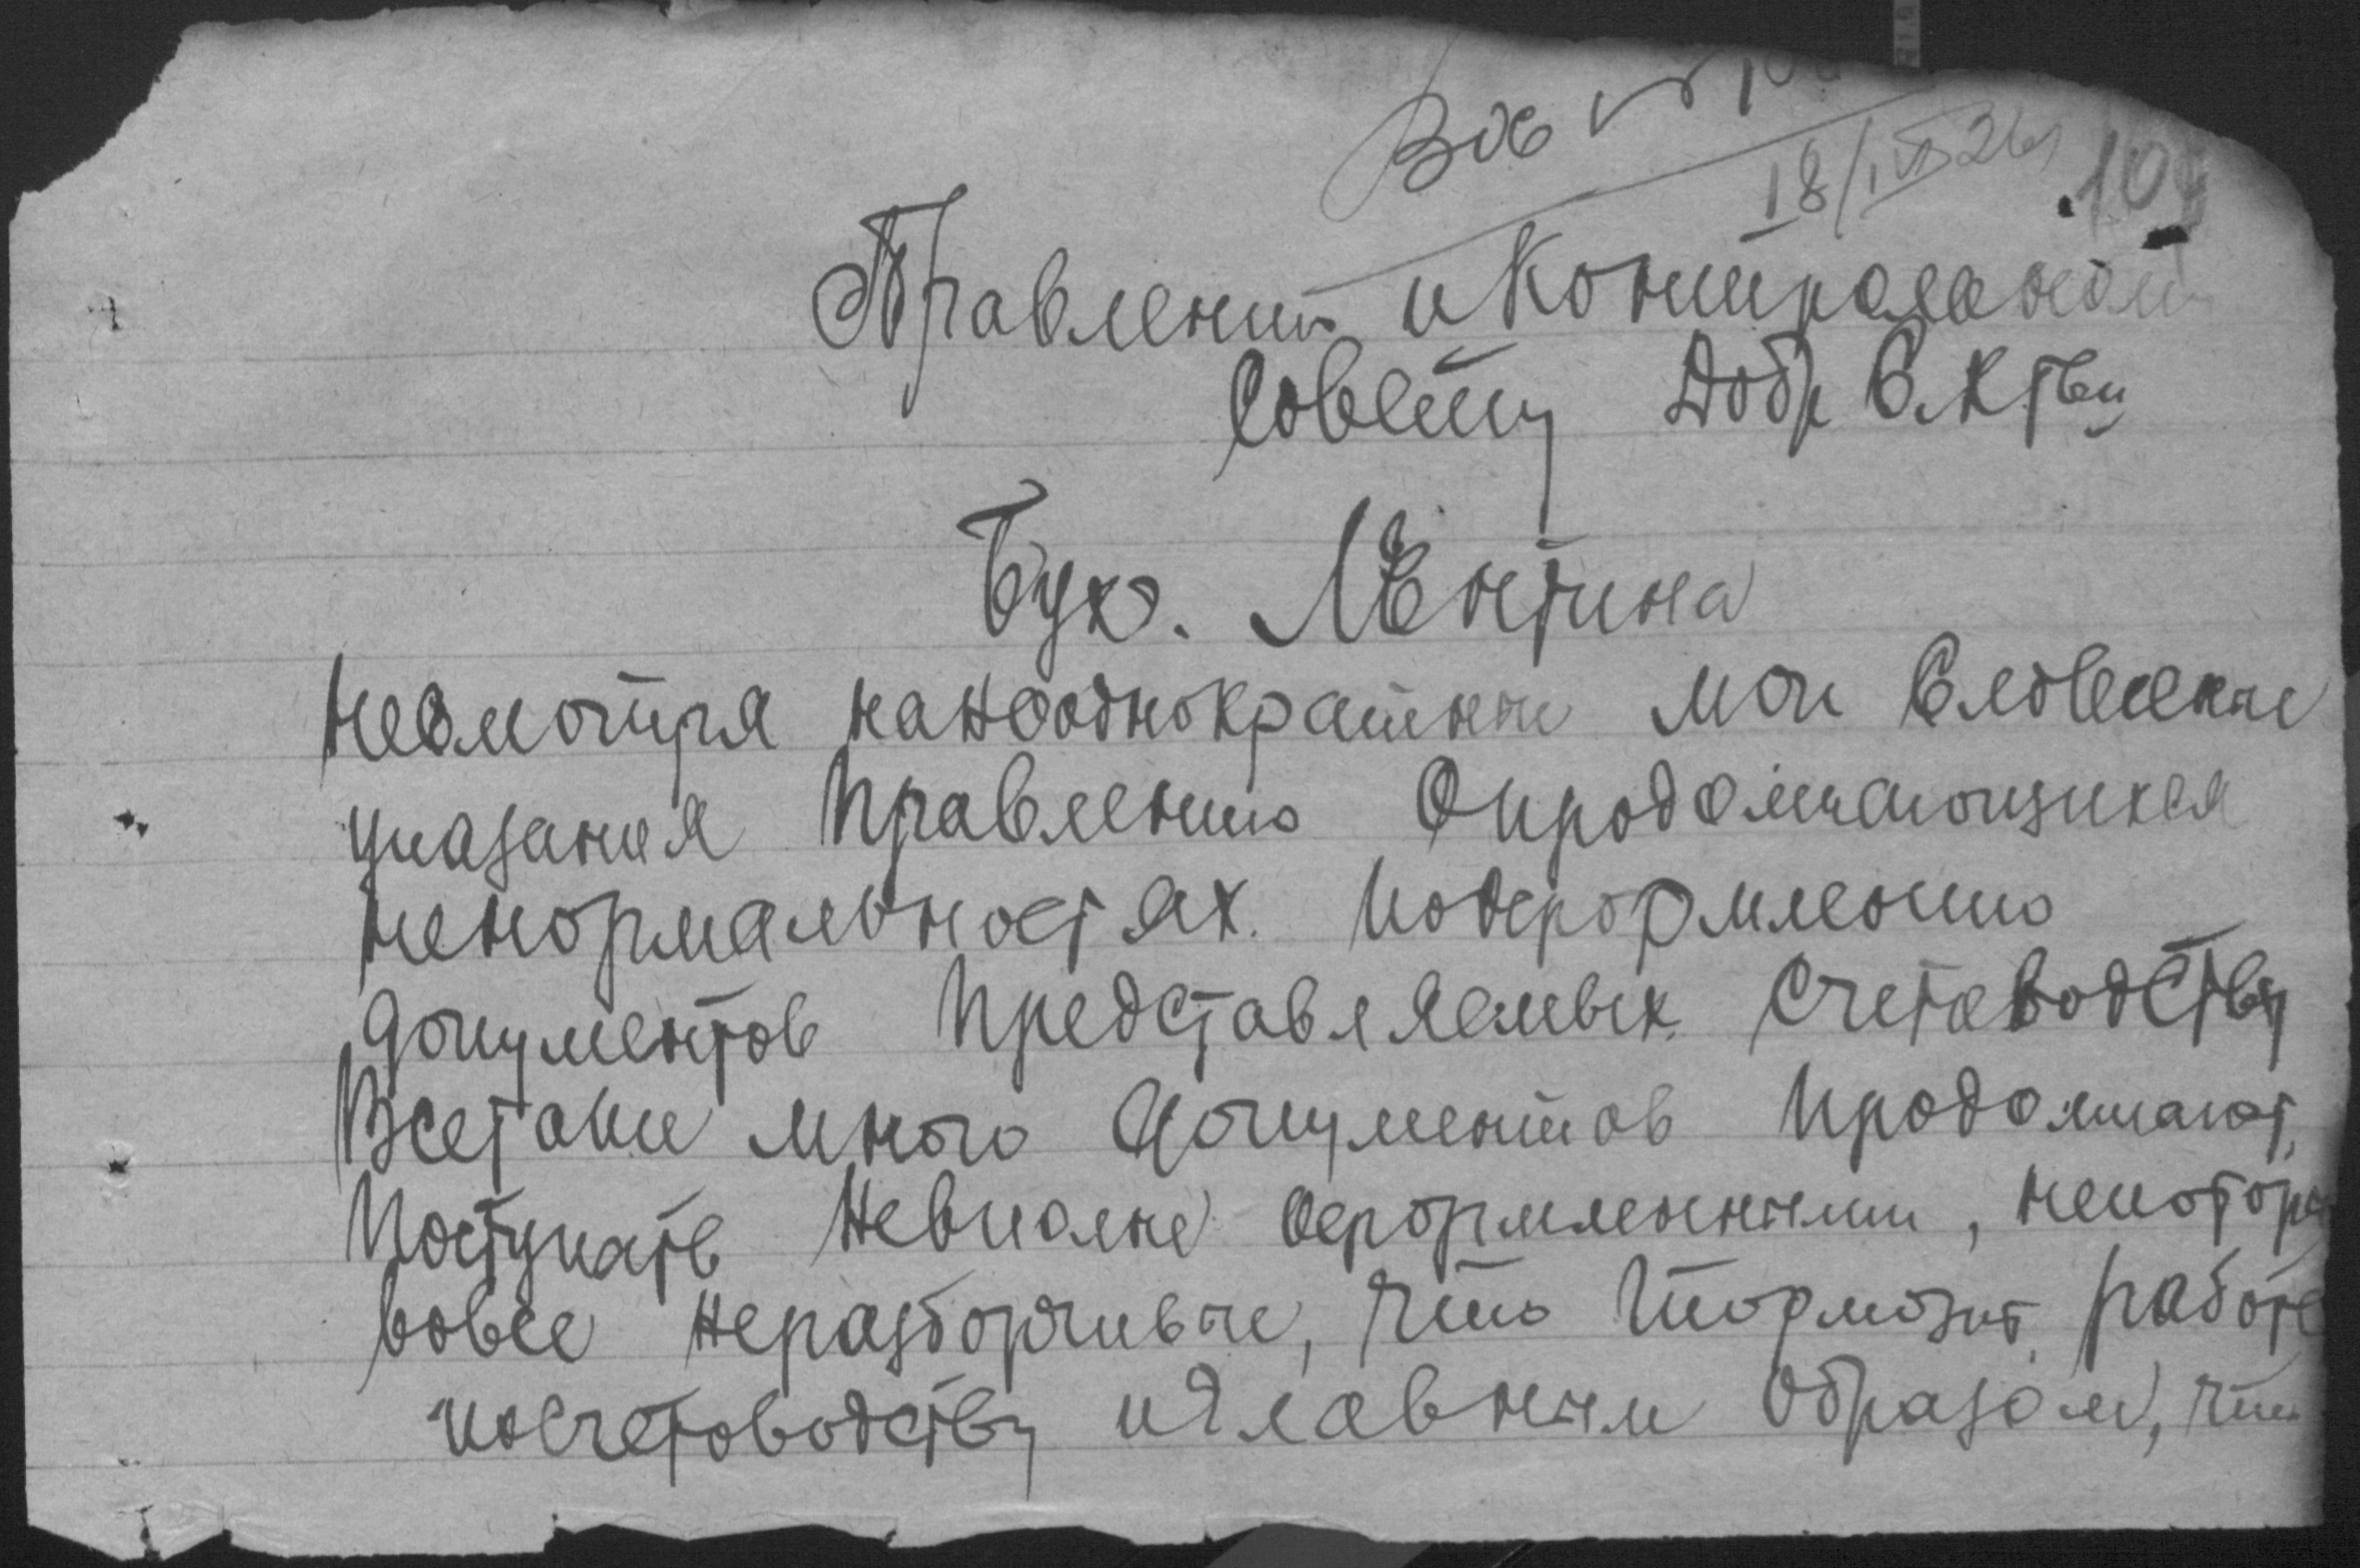 18/VII 26
Правлению и Контрольному
Совету Добр С.К тву
Бух. Лентина
несмотря на неоднократные мои Словесные
указания Правлению О продолжающихся
ненормальностях. по оформлению
документов Представляемых Счетоводству
Всетаки много документов продолжают
Поступать Не вполне оформленными, некоторы
вовсе Неразборчивые, что тормозит работе
по счетоводству и главным образом, что